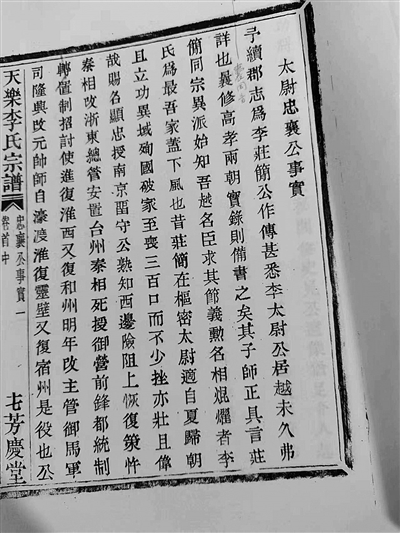 太尉忠襄公事實
予續郡志爲李莊簡公作傳甚悉李太尉公居越未久弗
詳也曩修高孝兩朝實錄則備書之矣其子師正具言莊
簡同宗異派始知吾越名臣求其節義勳名相焜燿者李
氏爲最吾家蓋下風也昔莊簡在樞密太尉適自夏歸朝
且立功異域殉國破家至喪三百口而不少挫亦壯且偉
哉賜名顯忠授南京畱守公熟知西邊險阻上恢復策忤
秦相改浙東總管安置台州秦相死授御營前鋒都統制
轉置制招討使進復淮西又復和州明年改主管御馬軍
司隆興改元帥師自濠渡淮復靈壁又復宿州是役也公
天樂李氏宗譜
卷首中
忠襄公事實一
七芳慶堂